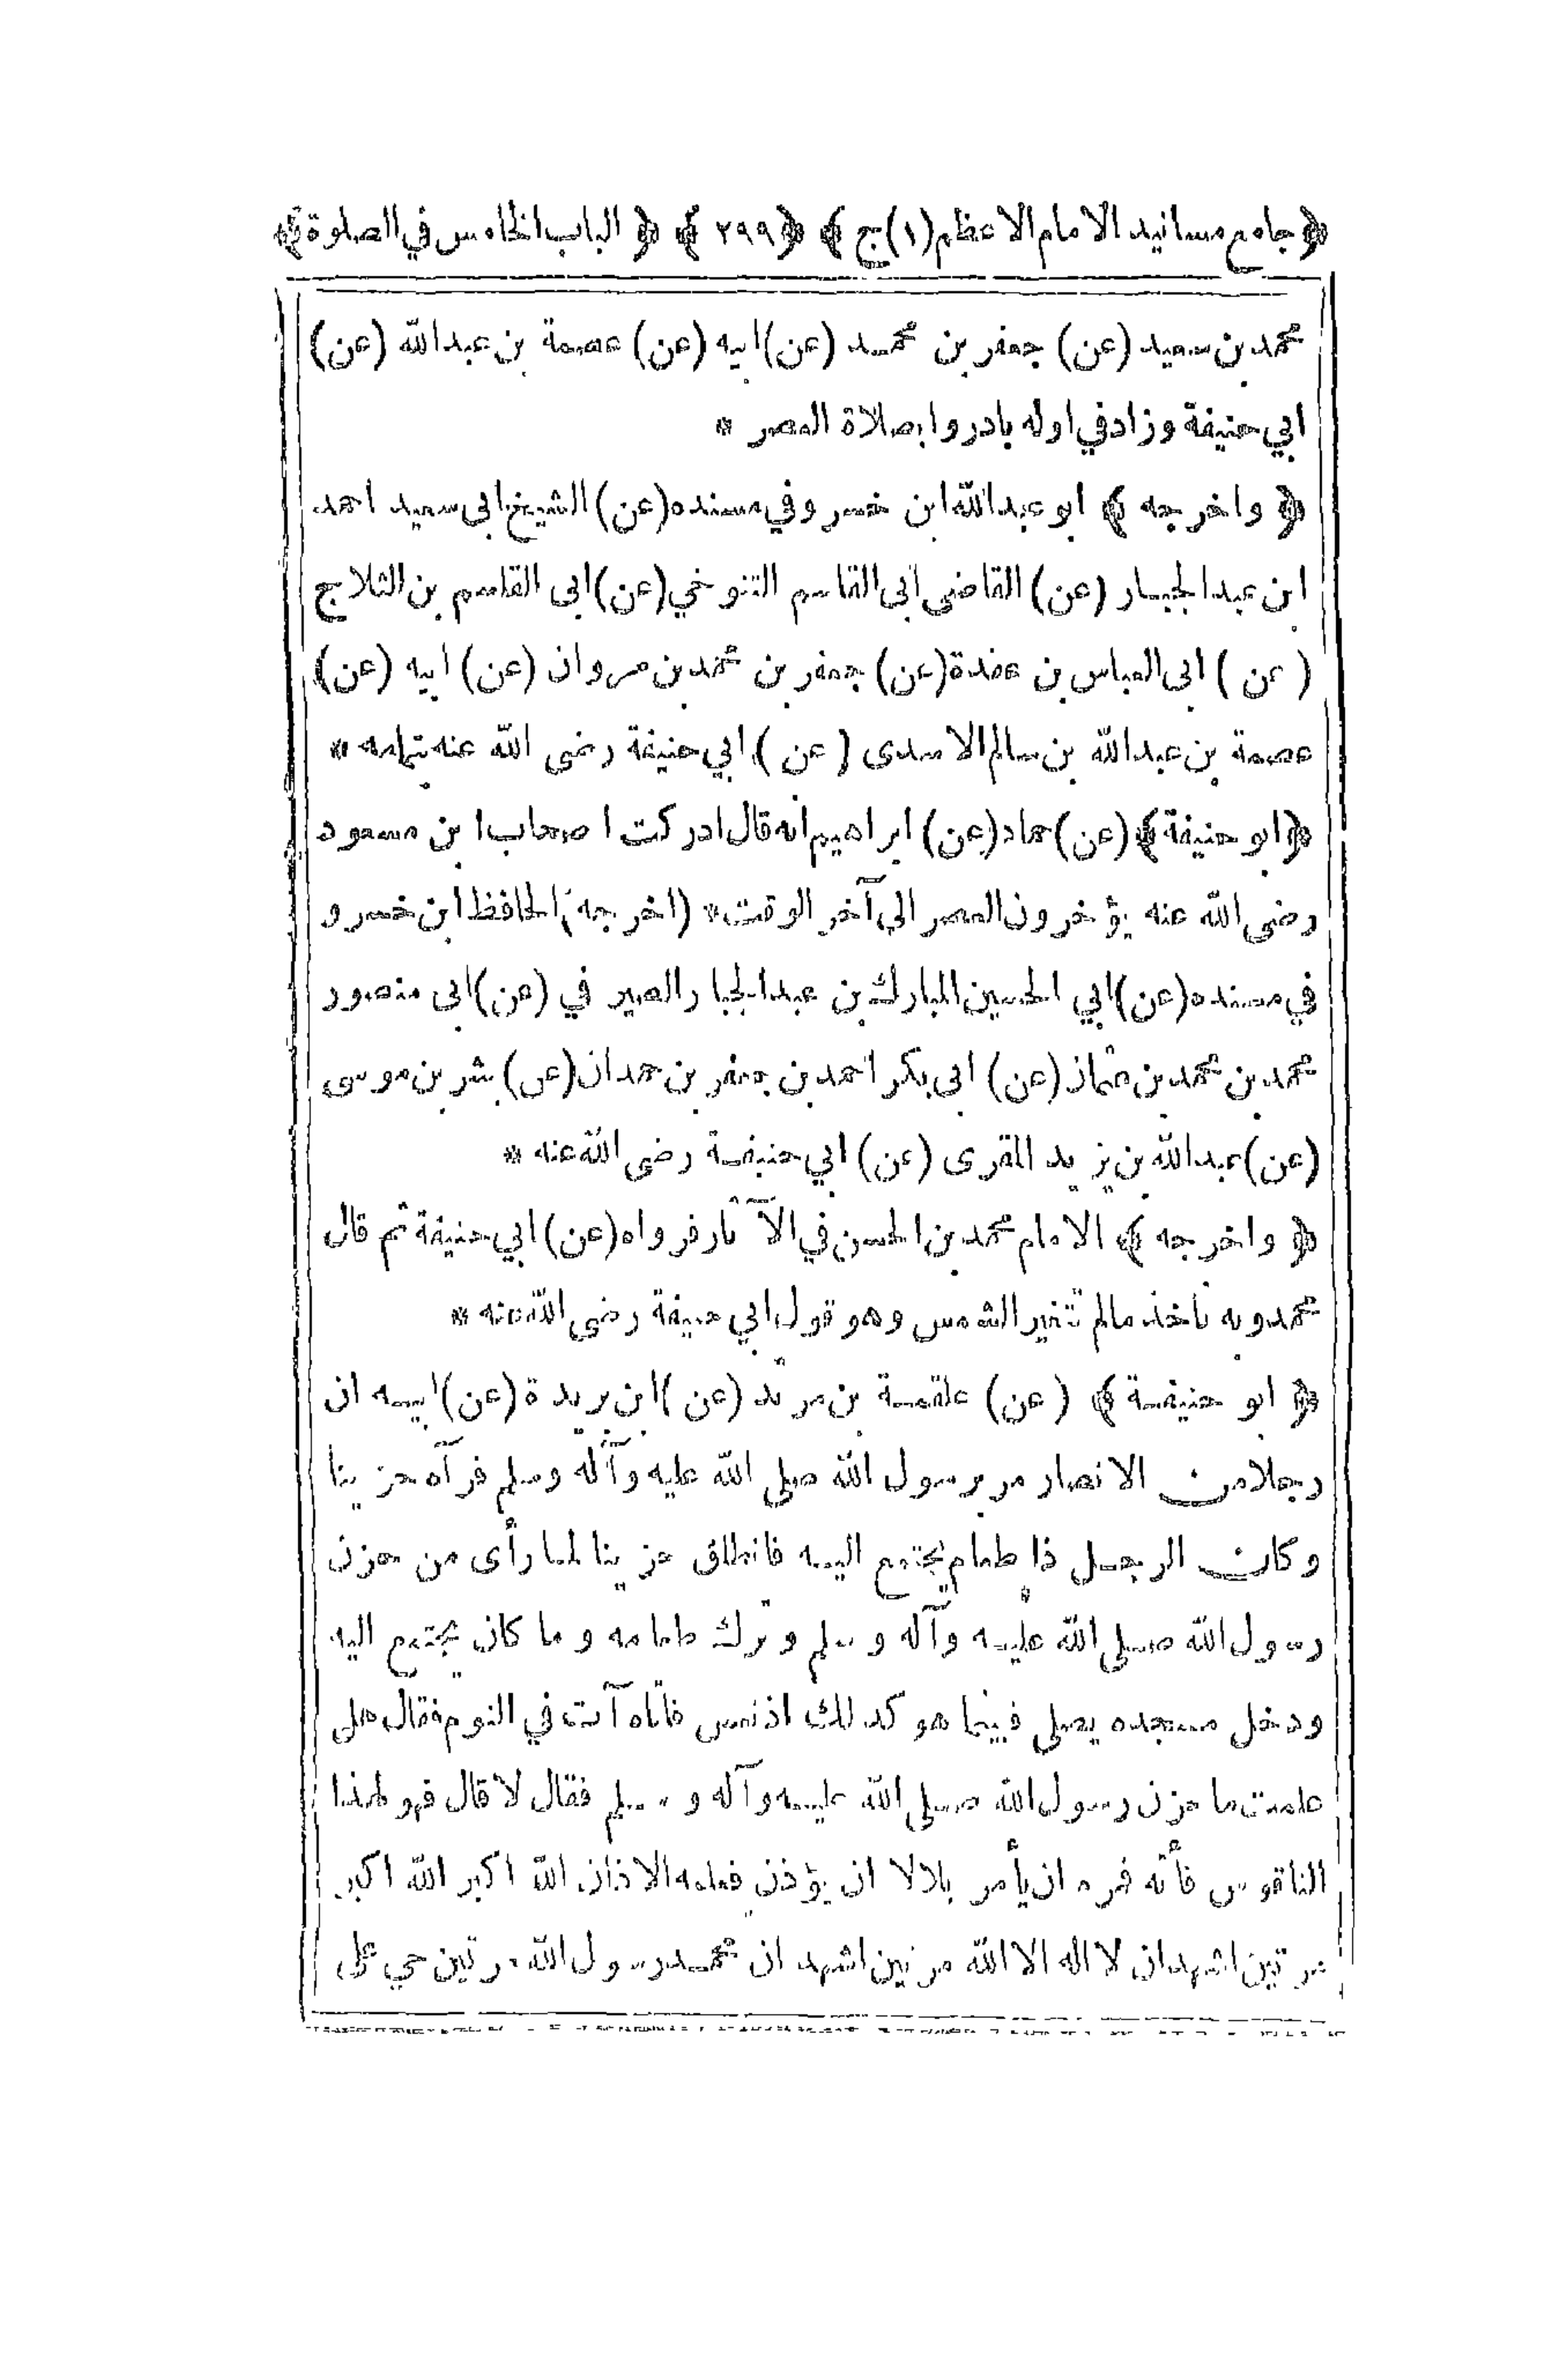 ﴿جامع مسانيد الامام الاعظم(١)ج﴾ ﴿٢٩٩﴾ ﴿الباب الخامس في الصلوة﴾
محمد بن سعيد (عن) جعفر بن محمد (عن) ابيه (عن) عصمة بن عبدالله (عن)
ابي حنيفة وزاد في اوله بادروا بصلاة العصر *
﴿واخرجه﴾ ابو عبدالله ابن خسرو في مسنده (عن) الشيخ ابي سعيد احمد
ابن عبدالجبار (عن) القاضي ابي القاسم التنوخي (عن) ابي القاسم بن الثلاج
(عن) ابي العباس بن عقدة (عن) جعفر بن محمد بن مروان (عن) ابيه (عن)
عصمة بن عبدالله بن سالم الاسدى (عن) ابي حنيفة رضى الله عنه بتمامه *
﴿ابو حنيفة﴾ (عن) حماد (عن) ابراهيم انه قال ادركت اصحاب ابن مسعود
رضى الله عنه يؤخرون العصر الى آخر الوقت * (اخرجه) الحافظ ابن خسرو
في مسنده (عن) ابي الحسين المبارك بن عبدالجبار الصير في (عن) ابى منصور
محمد بن محمد بن عثمان (عن) ابى بكر احمد بن جعفر بن حمدان (عن) بشر بن موسى
(عن) عبدالله بن يزيد المقرى (عن) ابي حنيفة رضى الله عنه *
﴿واخرجه﴾ الامام محمد بن الحسن في الآثار فرواه (عن) ابي حنيفة ثم قال
محمد وبه ناخذ مالم تتغير الشمس وهو قول ابي حنيفة رضى الله عنه *
﴿ابو حنيفة﴾ (عن) علقمة بن مرثد (عن) ابن بريدة (عن) ابيه ان
رجلا من الانصار مر برسول الله صلى الله عليه وآله وسلم فرآه حزينا
وكان الرجل ذا طعام يجتمع اليه فانطلق حزينا لما رأى من حزن
رسول الله صلى الله عليه وآله وسلم وترك طعامه وما كان يجتمع اليه
ودخل مسجده يصلى فبينما هو كذلك اذ نعس فاتاه آت في النوم فقال هل
علمت ما حزن رسول الله صلى الله عليه وآله وسلم فقال لا قال فهو لهذا
الناقوس فأته فمره ان يأمر بلالا ان يؤذن فعلمه الاذان الله اكبر الله اكبر
مرتين اشهد ان لا اله الا الله مرتين اشهد ان محمد رسول الله مرتين حي على